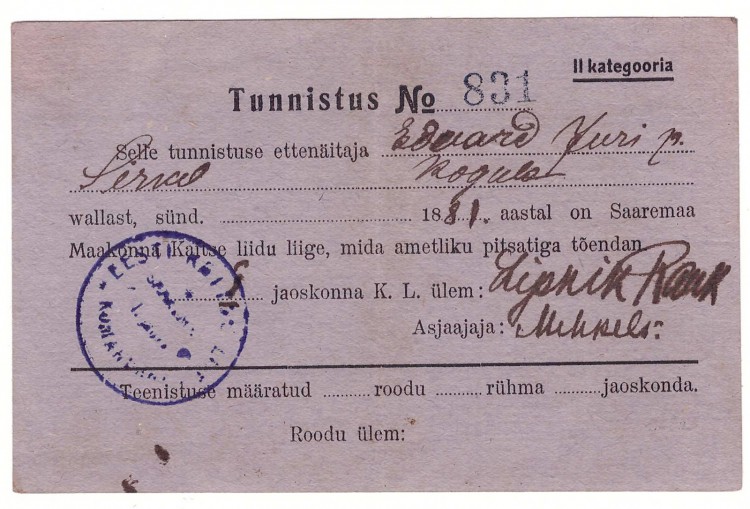 II kategooria
Tunnistus No 831
Selle tunnistuse ettenäitaja Eduard Jüri p.
wallast, sünd. 1881. aastal on Saaremaa
Maakonna Kaitse liidu liige, mida ametliku pitsatiga tõendan
jaoskonna K. L. ülem:
Asjaajaja:
EESTI KAITSE
Teenistuse määratud roodu rühma jaoskonda.
Roodu ülem: